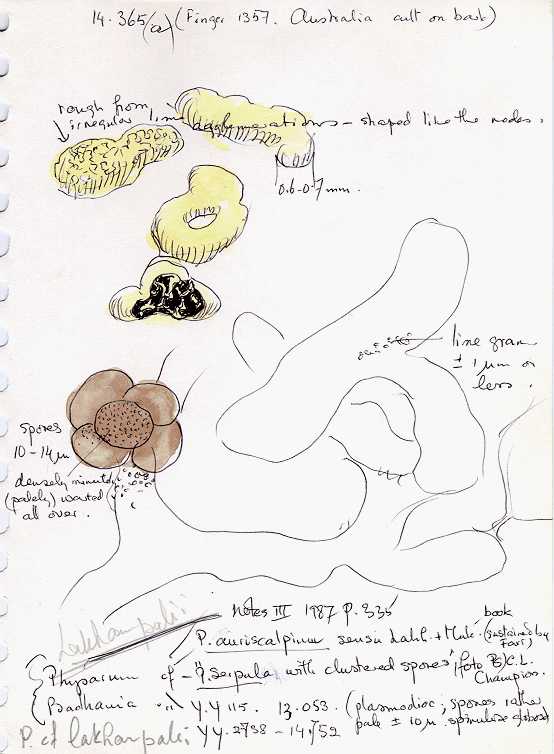 14.365 (a) (Finger 1357. Australia cult on bark)
rough from
irregular lime agglomerations - shaped like the nodes.
0.6-0.7 mm.
lime gran
± 1 µm or
less.
spores
10-14 µ
densely minutely
(palely) warted
all over.
Lakhanpalii
Notes III 1987 p. 335
P. auriscalpium sensu Lakh. + Muk. book
(sustained by
Farr)
Physarum cf - serpula with clustered spores (foto B) C.L.
Champion.
Badhamia YY 115. 13.053. (plasmodioc; spores rather
pale ± 10 µ. spinulose globose)
P. cf lakhanpalii YY 2738 - 14752